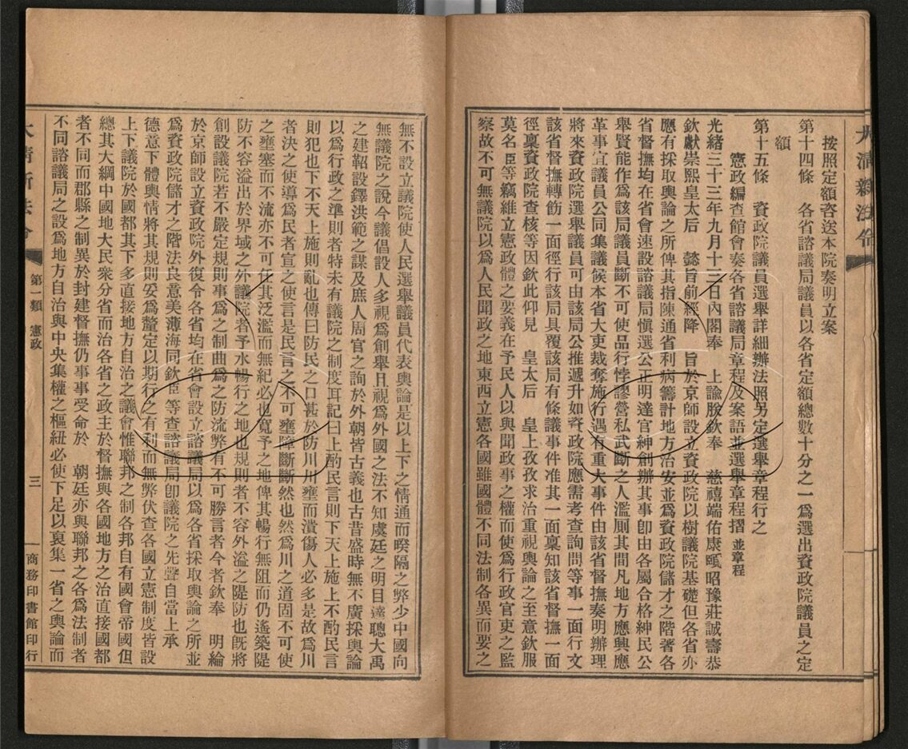 大清新法令
按照定額咨送本院奏明立案
第十四條　各省諮議局議員以各省定額總數十分之一爲選出資政院議員之定
額
第十五條　資政院議員選舉詳細辦法照另定選舉章程行之
憲政編查館會奏各省諮議局章程及案語並選舉章程摺 並章程
光緒三十三年九月十三日內閣奉　上諭朕欽奉　慈禧端佑康頤昭豫莊誠壽恭
欽獻崇熙皇太后　懿旨前經降　旨於京師設立資政院以樹議院基礎但各省亦
應有採取輿論之所俾其指陳通省利病籌計地方治安並爲資政院儲才之階著各
省督撫均在省會速設諮議局愼選公正明達官紳創辦其事卽由各屬合格紳民公
舉賢能作爲該局議員斷不可使品行悖謬營私武斷之人濫厠其間凡地方應興應
革事宜議員公同集議候本省大吏裁奪施行遇有重大事件由該省督撫奏明辦理
將來資政院選舉議員可由該局公推遞升如資政院應需考查詢問等事一面行文
該省督撫轉飭一面徑行該局具覆該局有條議事件准其一面稟知該省督撫一面
徑稟資政院查核等因欽此仰見　皇太后　皇上孜孜求治重視輿論之至意欽服
莫名臣等竊維立憲政體之要義在予民人以與聞政事之權而使爲行政官吏之監
察故不可無議院以爲人民聞政之地東西立憲各國雖國體不同法制各異而要之
無不設立議院使人民選舉議員代表輿論是以上下之情通而暌隔之弊少中國向
無議院之說今議倡設人多視爲創舉且視爲外國之法不知虞廷之明目達聰大禹
之建鞀設鐸洪範之謀及庶人周官之詢於外朝皆古義也古昔盛時無不廣採輿論
以爲行政之準則者特未有議院之制度耳記曰上酌民言則下天上施上不酌民言
則犯也下不天上施則亂也傳曰防民之口甚於防川川壅而潰傷人必多是故爲川
者決之使導爲民者宣之使言是民言之不可壅障斷斷然也然爲川之道固不可使
之壅塞而不流亦不可任其泛濫而無紀必也寬予之地俾其暢行無阻而仍遙築隄
防不容溢出於界域之外議院者予水暢行之地也規則者不容外溢之隄防也旣將
創設議院若不嚴定規則事爲之制曲爲之防流弊有不可勝言者今者欽奉　明綸
於京師設立資政院外復令各省均在省會設立諮議局以爲各省採取輿論之所並
爲資政院儲才之階法良意美薄海同欽臣等查諮議局卽議院之先聲自當上承
德意下體輿情將其規則妥爲釐定以期行之有利而無弊伏查各國立憲制度皆設
上下議院於國都其下多直接地方自治之議會惟聯邦之制各邦自有國會帝國但
總其大綱中國地大民衆分省而治各省之政主於督撫與各國地方之治直接國都
者不同而郡縣之制異於封建督撫仍事事受命於　朝廷亦與聯邦之各爲法制者
不同諮議局之設爲地方自治與中央集權之樞紐必使下足以裒集一省之輿論而
大清新法令　第一類　憲政　三　商務印書館印行